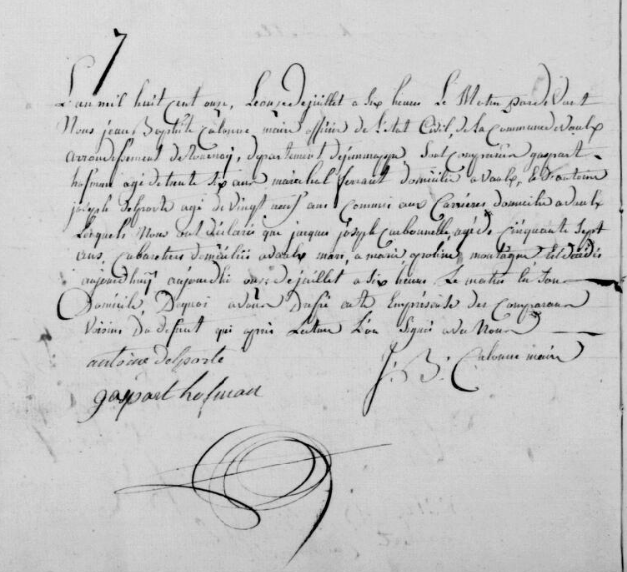 7
L'an mil huit Cent onze, Le onze de juillet a six heures Le Matin pardevant
Nous jean Baptiste Calonne, maire officier de L'etat Civil de La Commune de vaulx
arrondissement de tournay, departement dejemmappe, Sont Comparus gaspart
hofman agé de trente six ans marechal ferrant domicilié a vaulx, et antoine
joseph Delporte agé de vingt neuf ans Commis aux Carrieres domicilié a vaulx
Lesquels Nous ont declaré que jacques joseph Carbonnelle agé de Cinquante Sept
ans, Cabaretier domicilié a vaulx mari, a marie montagne Est decedé
aujourdhuy aujourdhui onze de juillet a six heures Le matin En Son
Domicile, Dequoi avons Dressé acte En presence des Comparans
Voisins Du defunt qui après Lecture L'on Signés avec Nous
antoine delporte
gaspart hofman
J. B. Calonne maire